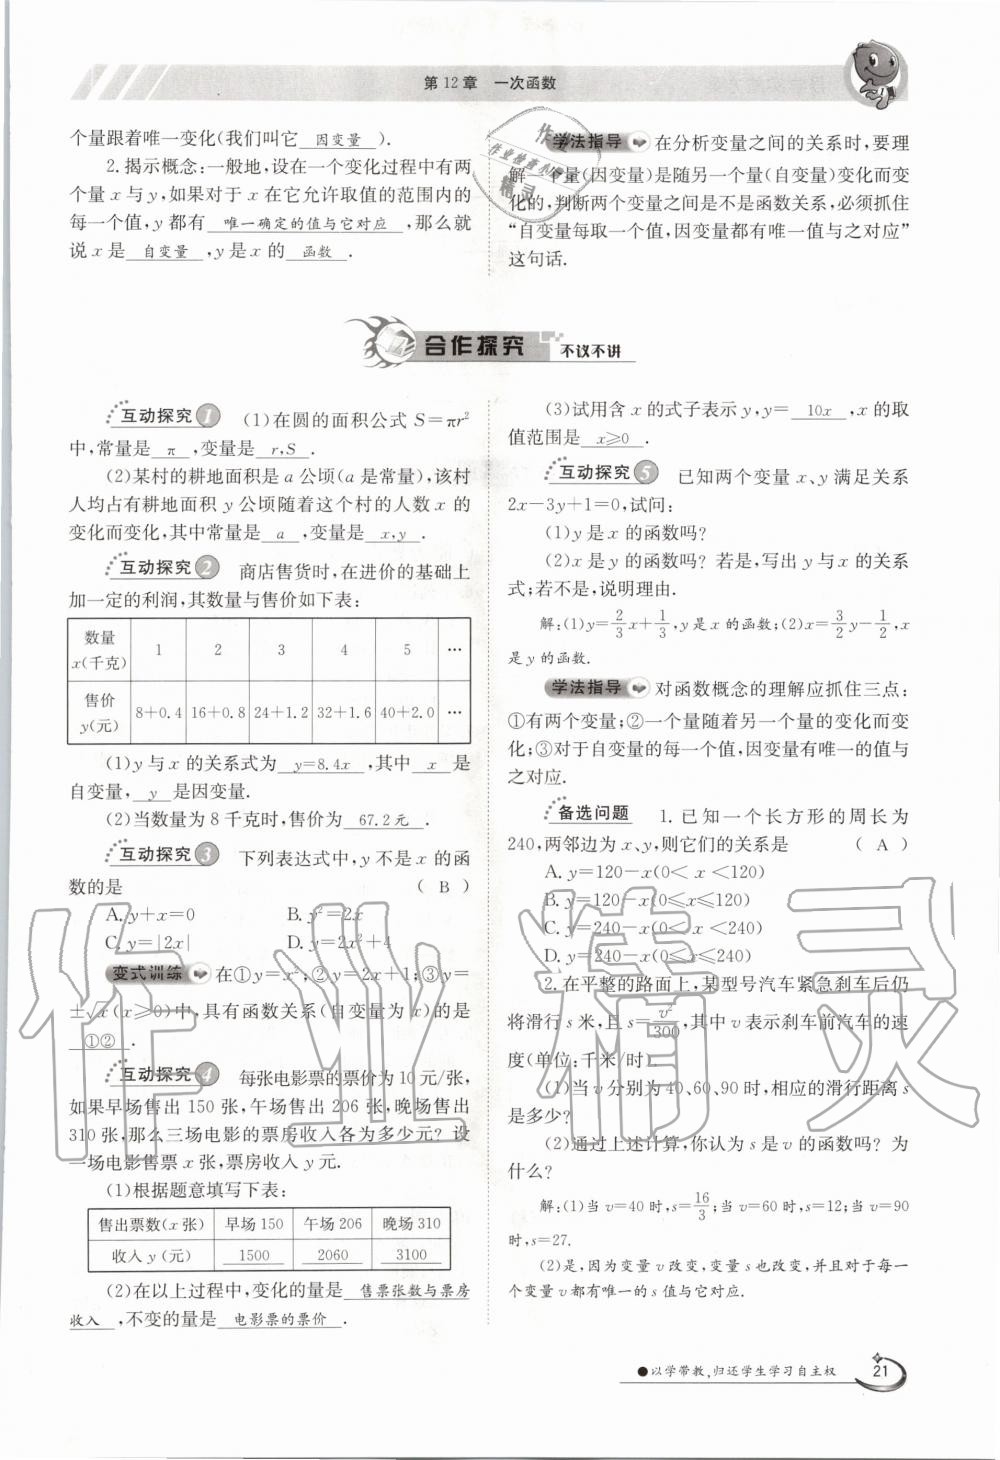 第12章　一次函数
个量跟着唯一变化(我们叫它 因变量 ).
2. 揭示概念:一般地,设在一个变化过程中有两
个量 x 与 y,如果对于 x 在它允许取值的范围内的
每一个值,y 都有 唯一确定的值与它对应 ,那么就
说 x 是 自变量 ,y 是 x 的 函数 .
学法指导 在分析变量之间的关系时,要理
解一个量(因变量)是随另一个量(自变量)变化而变
化的,判断两个变量之间是不是函数关系,必须抓住
“自变量每取一个值,因变量都有唯一值与之对应”
这句话.
合作探究 不议不讲
互动探究1 (1)在圆的面积公式 S=πr²
中,常量是 π ,变量是 r,S .
(2)某村的耕地面积是 a 公顷(a 是常量),该村
人均占有耕地面积 y 公顷随着这个村的人数 x 的
变化而变化,其中常量是 a ,变量是 x,y .
互动探究2 商店售货时,在进价的基础上
加一定的利润,其数量与售价如下表:
数量 x(千克) 1 2 3 4 5 …
售价 y(元) 8+0.4 16+0.8 24+1.2 32+1.6 40+2.0 …
(1)y 与 x 的关系式为 y=8.4x ,其中 x 是
自变量, y 是因变量.
(2)当数量为 8 千克时,售价为 67.2元 .
互动探究3 下列表达式中,y 不是 x 的函
数的是 ( B )
A. y+x=0 B. y²=2x
C. y=|2x| D. y=2x²+4
变式训练 在①y=x²;②y=2x+1;③y=
±√x(x≥0)中,具有函数关系(自变量为 x)的是
①② .
互动探究4 每张电影票的票价为 10 元/张,
如果早场售出 150 张,午场售出 206 张,晚场售出
310 张,那么三场电影的票房收入各为多少元? 设
一场电影售票 x 张,票房收入 y 元.
(1)根据题意填写下表:
售出票数(x 张) 早场 150 午场 206 晚场 310
收入 y(元) 1500 2060 3100
(2)在以上过程中,变化的量是 售票张数与票房
收入 ,不变的量是 电影票的票价 .
(3)试用含 x 的式子表示 y,y= 10x ,x 的取
值范围是 x≥0 .
互动探究5 已知两个变量 x、y 满足关系
2x-3y+1=0,试问:
(1)y 是 x 的函数吗?
(2)x 是 y 的函数吗? 若是,写出 y 与 x 的关系
式;若不是,说明理由.
解:(1)y=2/3x+1/3,y 是 x 的函数;(2)x=3/2y-1/2,x
是 y 的函数.
学法指导 对函数概念的理解应抓住三点:
①有两个变量;②一个量随着另一个量的变化而变
化;③对于自变量的每一个值,因变量有唯一的值与
之对应.
备选问题 1. 已知一个长方形的周长为
240,两邻边为 x、y,则它们的关系是 ( A )
A. y=120-x(0<x<120)
B. y=120-x(0≤x≤120)
C. y=240-x(0<x<240)
D. y=240-x(0≤x≤240)
2. 在平整的路面上,某型号汽车紧急刹车后仍
将滑行 s 米,且 s=v²/300,其中 v 表示刹车前汽车的速
度(单位:千米/时).
(1)当 v 分别为 40、60、90 时,相应的滑行距离 s
是多少?
(2)通过上述计算,你认为 s 是 v 的函数吗? 为
什么?
解:(1)当 v=40 时,s=16/3;当 v=60 时,s=12;当 v=90
时,s=27.
(2)是,因为变量 v 改变,变量 s 也改变,并且对于每一
个变量 v 都有唯一的 s 值与它对应.
●以学带教,归还学生学习自主权
21
作业精灵